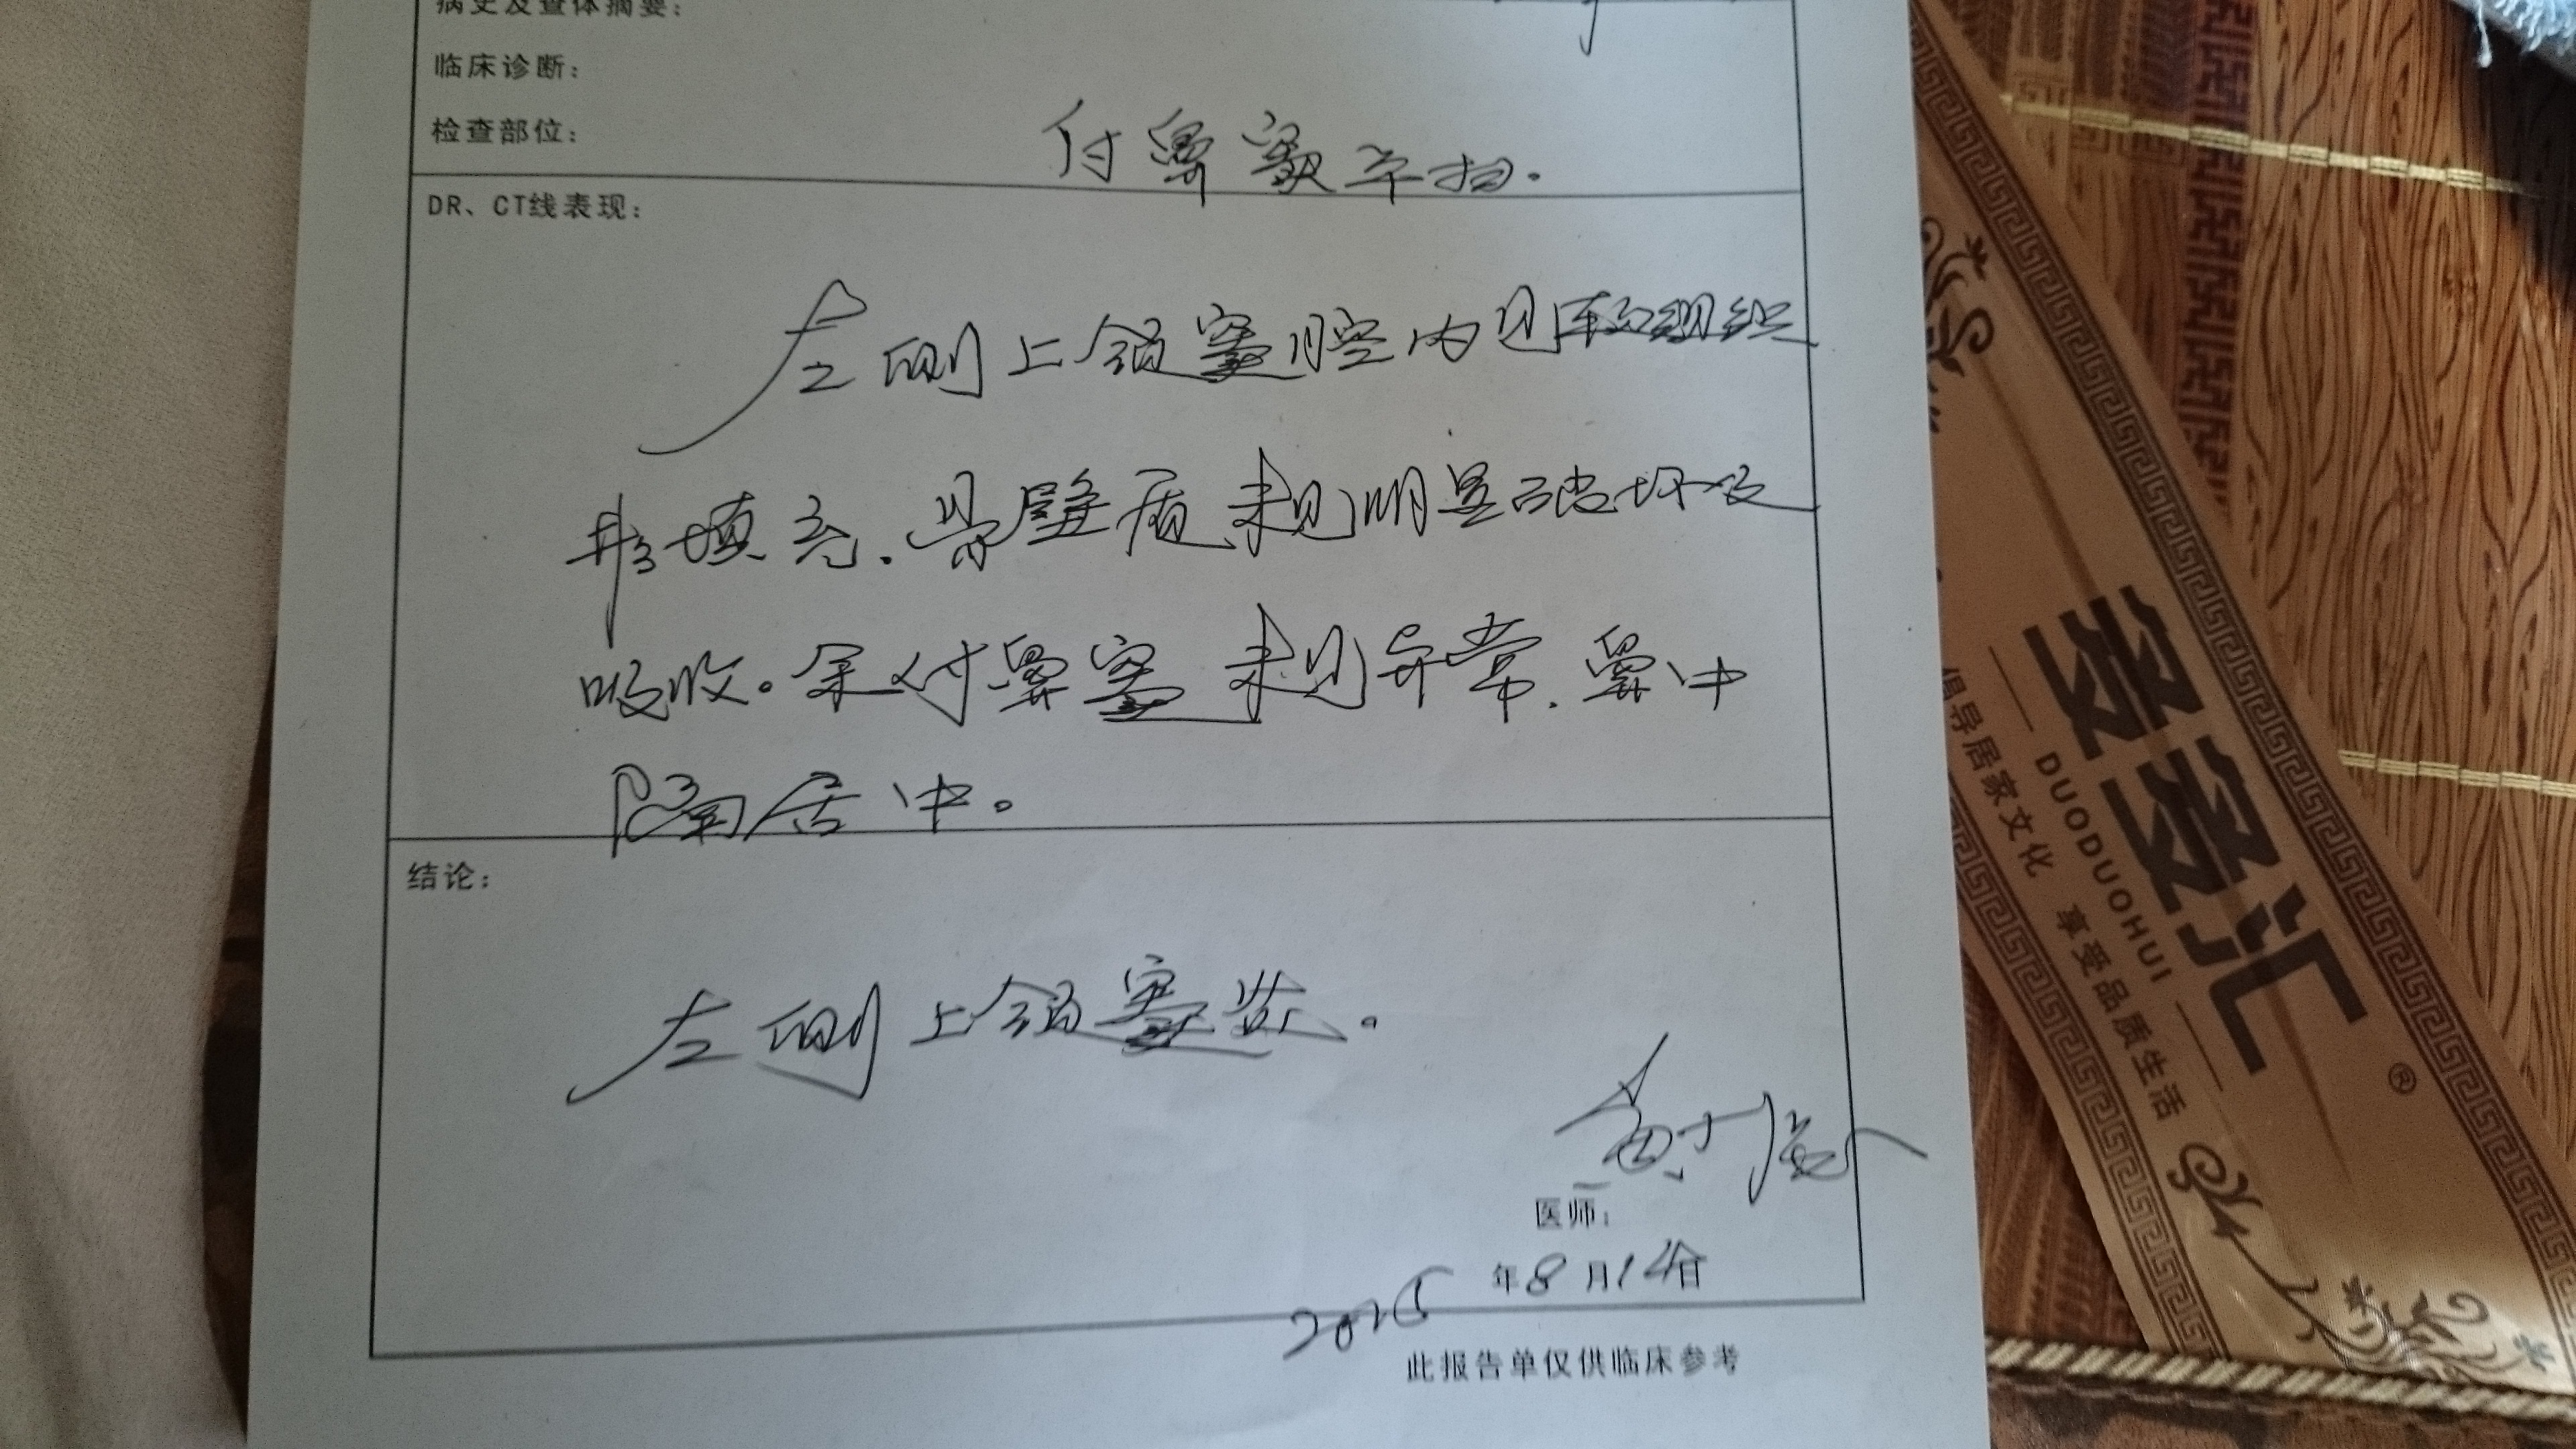 病史及查体摘要：
临床诊断：
检查部位：
付鼻窦平扫.
DR、CT线表现：
左侧上颌窦腔内见软组织
形填充.骨壁质未见明显破坏及
吸收。余付鼻窦未见异常.鼻中
隔居中。
结论：
左侧上颌窦炎。
医师：
2015年8月14日
此报告单仅供临床参考
多多汇
®
DUODUOHUI
倡导居家文化 享受品质生活